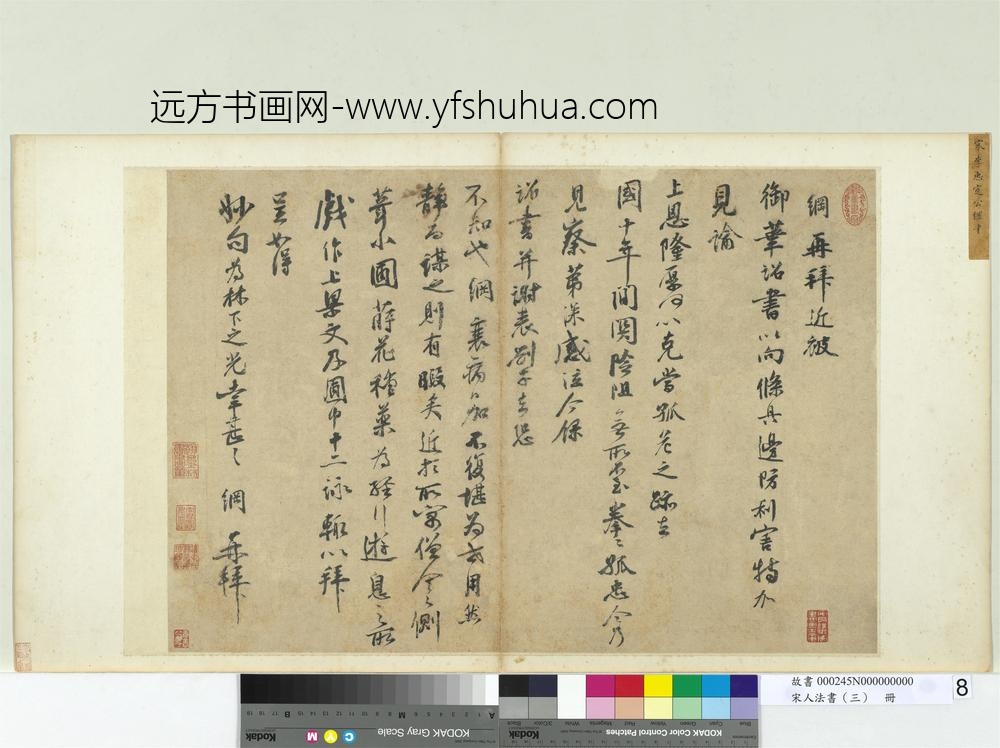 远方书画网-www.yfshuhua.com
宋李忠定公綱書
綱再拜近被
御筆詔書以向條具邊防利害特加
見諭
上恩隆厚何以克當孤危之跡去
國十年間關險阻無所不至拳拳孤忠今乃
見察第深感泣今錄
詔書并謝表劄子去恐
不知也綱衰病如不復堪為世用然
靜而謀之則有暇矣近於所寓僧舍之側
葺小圃蒔花種藥為經行遊息之所
戲作上梁文及圃中十二詠輒以拜
呈如得
妙句為林下之光幸甚幸甚 綱 再拜
故書 000245N000000000
宋人法書(三) 冊
8
KODAK Gray Scale
Kodak
KODAK Color Control Patches
Kodak
Blue
Cyan
Green
Yellow
Red
Magenta
White
3/Color
Black
C
Y
M
A
M
B